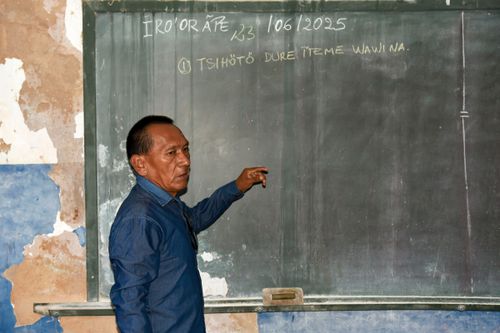 IRO'ORÃPE 23 /06/2025
① TSIHÖTÖ DURE ĨTEME WAWI NA.